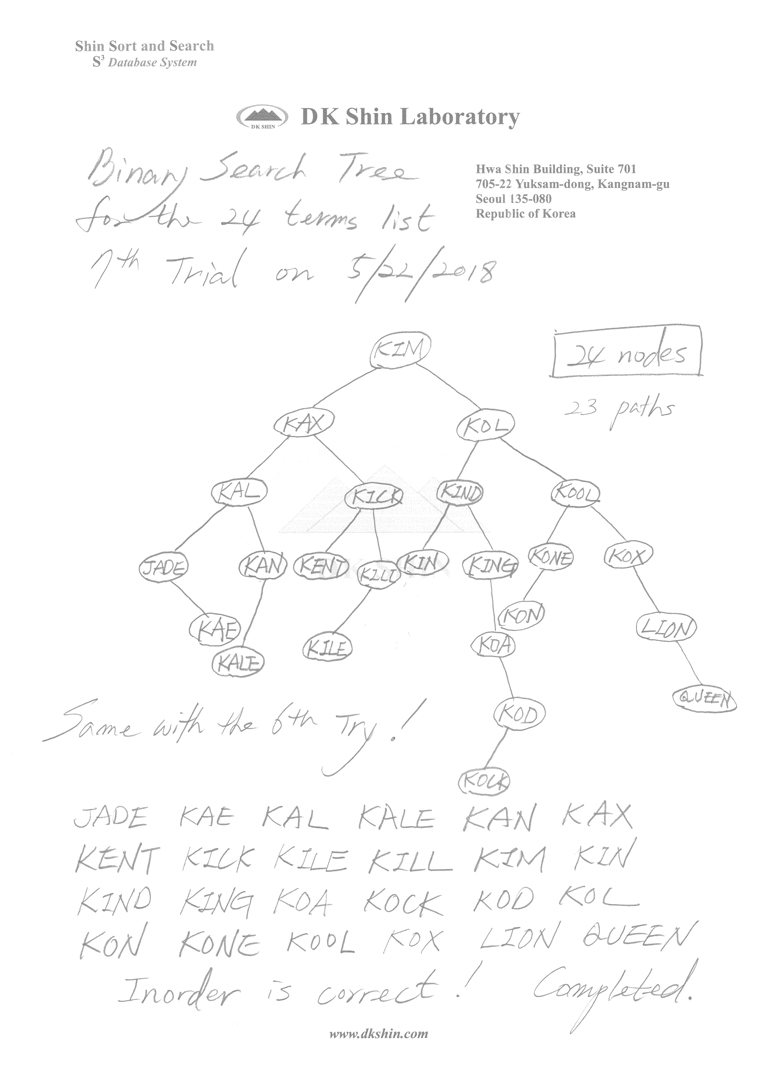 Shin Sort and Search
S³ Database System
DK SHIN
DK Shin Laboratory
Binary Search Tree
for the 24 terms list
7th Trial on 5/22/2018
Hwa Shin Building, Suite 701
705-22 Yuksam-dong, Kangnam-gu
Seoul 135-080
Republic of Korea
KIM
24 nodes
23 paths
KAX KOL
KAL KICK KIND KOOL
JADE KAN KENT KILL KIN KING KONE KOX
KAE KALE KILE KOA KON LION
KOD QUEEN
Same with the 6th Try!
KOCK
JADE KAE KAL KALE KAN KAX
KENT KICK KILE KILL KIM KIN
KIND KING KOA KOCK KOD KOL
KON KONE KOOL KOX LION QUEEN
Inorder is correct! Completed.
www.dkshin.com